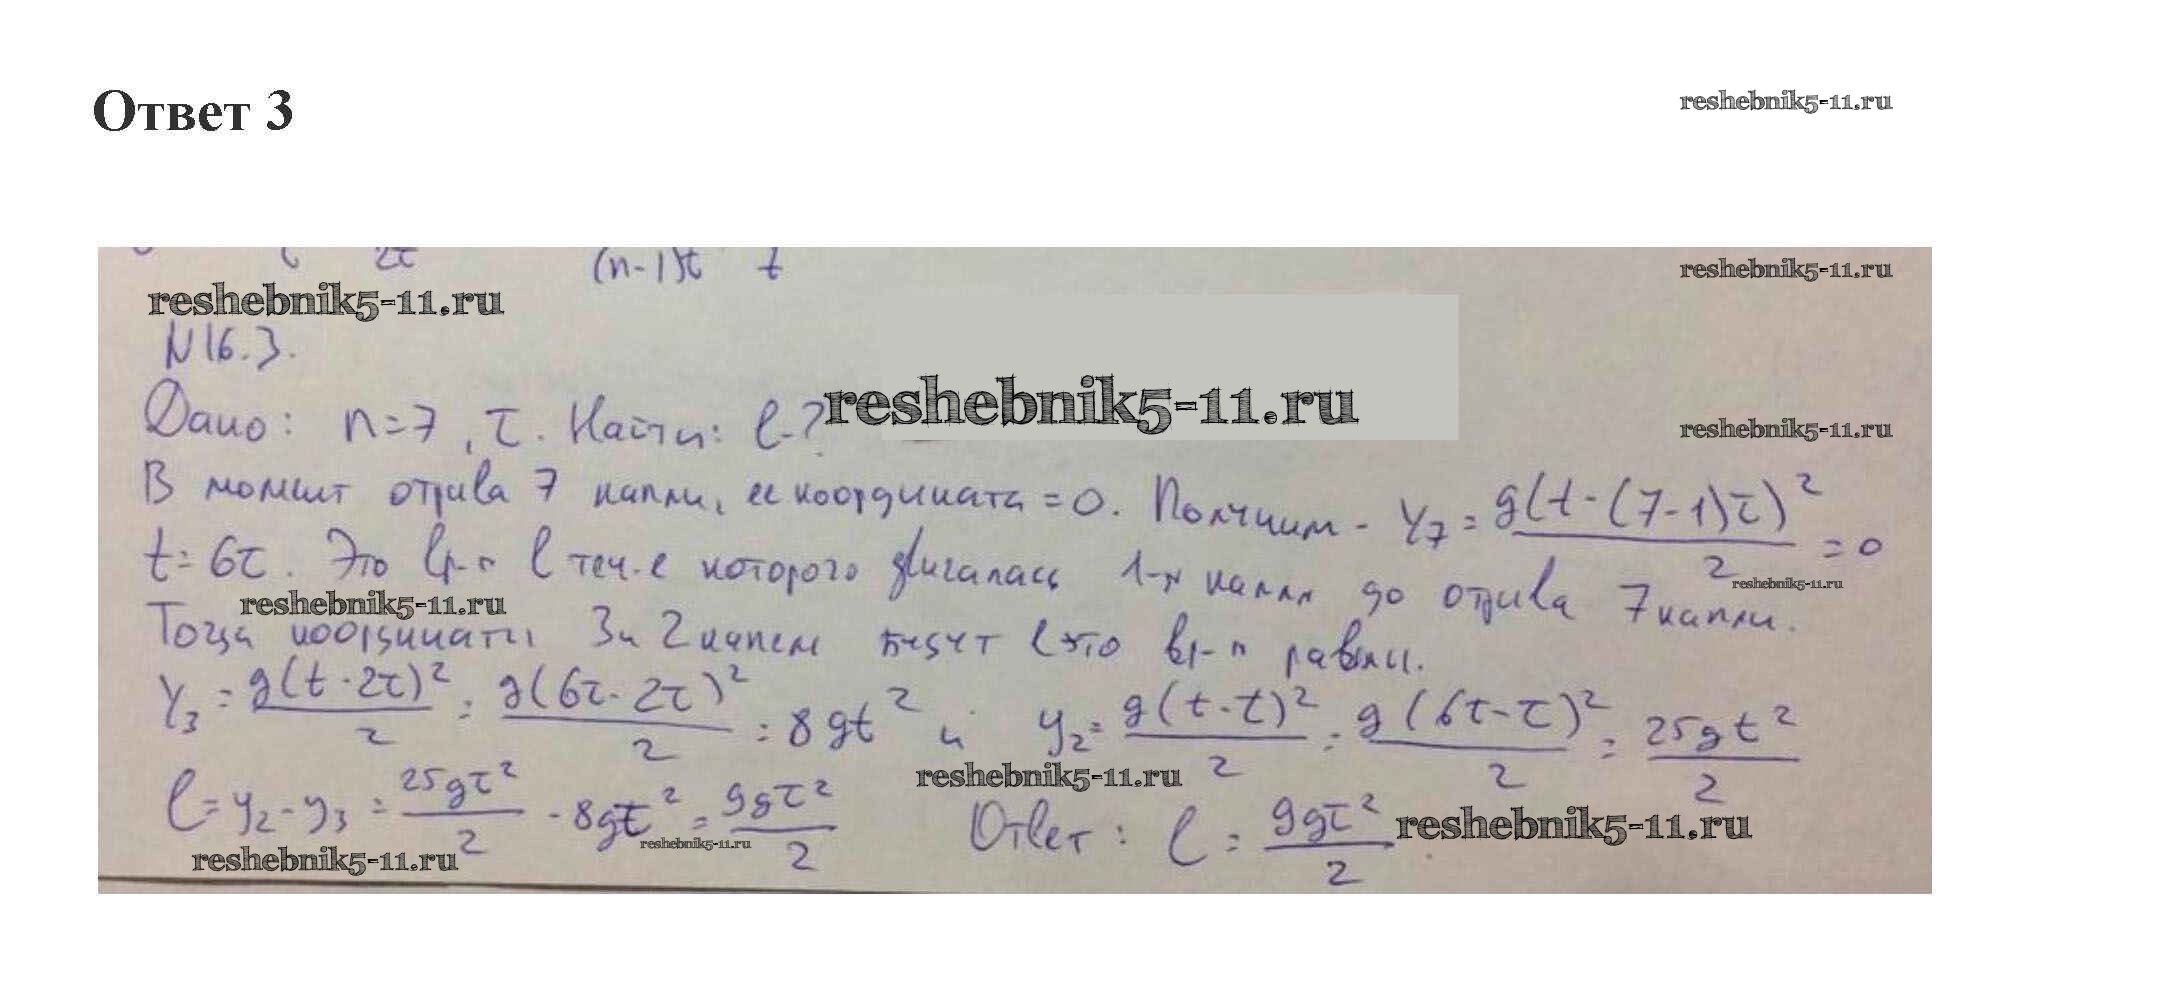 Ответ 3
reshebnik5-11.ru
(n-1)τ t
reshebnik5-11.ru
reshebnik5-11.ru
N 16.3.
reshebnik5-11.ru
Дано: n=7, τ. Найти: l-?
reshebnik5-11.ru
В момент отрыва 7 капли, ее координата = 0. Получим - Y₇ = g(t-(7-1)τ)²/2 = 0
reshebnik5-11.ru
t = 6τ. Это вр-я в теч-е которого двигалась 1-я капля до отрыва 7 капли.
reshebnik5-11.ru
Тогда координаты 3 и 2 капель будут в это вр-я равны.
Y₃ = g(t-2τ)²/2 = g(6τ-2τ)²/2 = 8gτ² и y₂ = g(t-τ)²/2 = g(6τ-τ)²/2 = 25gτ²/2
reshebnik5-11.ru
l = y₂ - y₃ = 25gτ²/2 - 8gτ² = 9gτ²/2 Ответ: l = 9gτ²/2
reshebnik5-11.ru
reshebnik5-11.ru
reshebnik5-11.ru